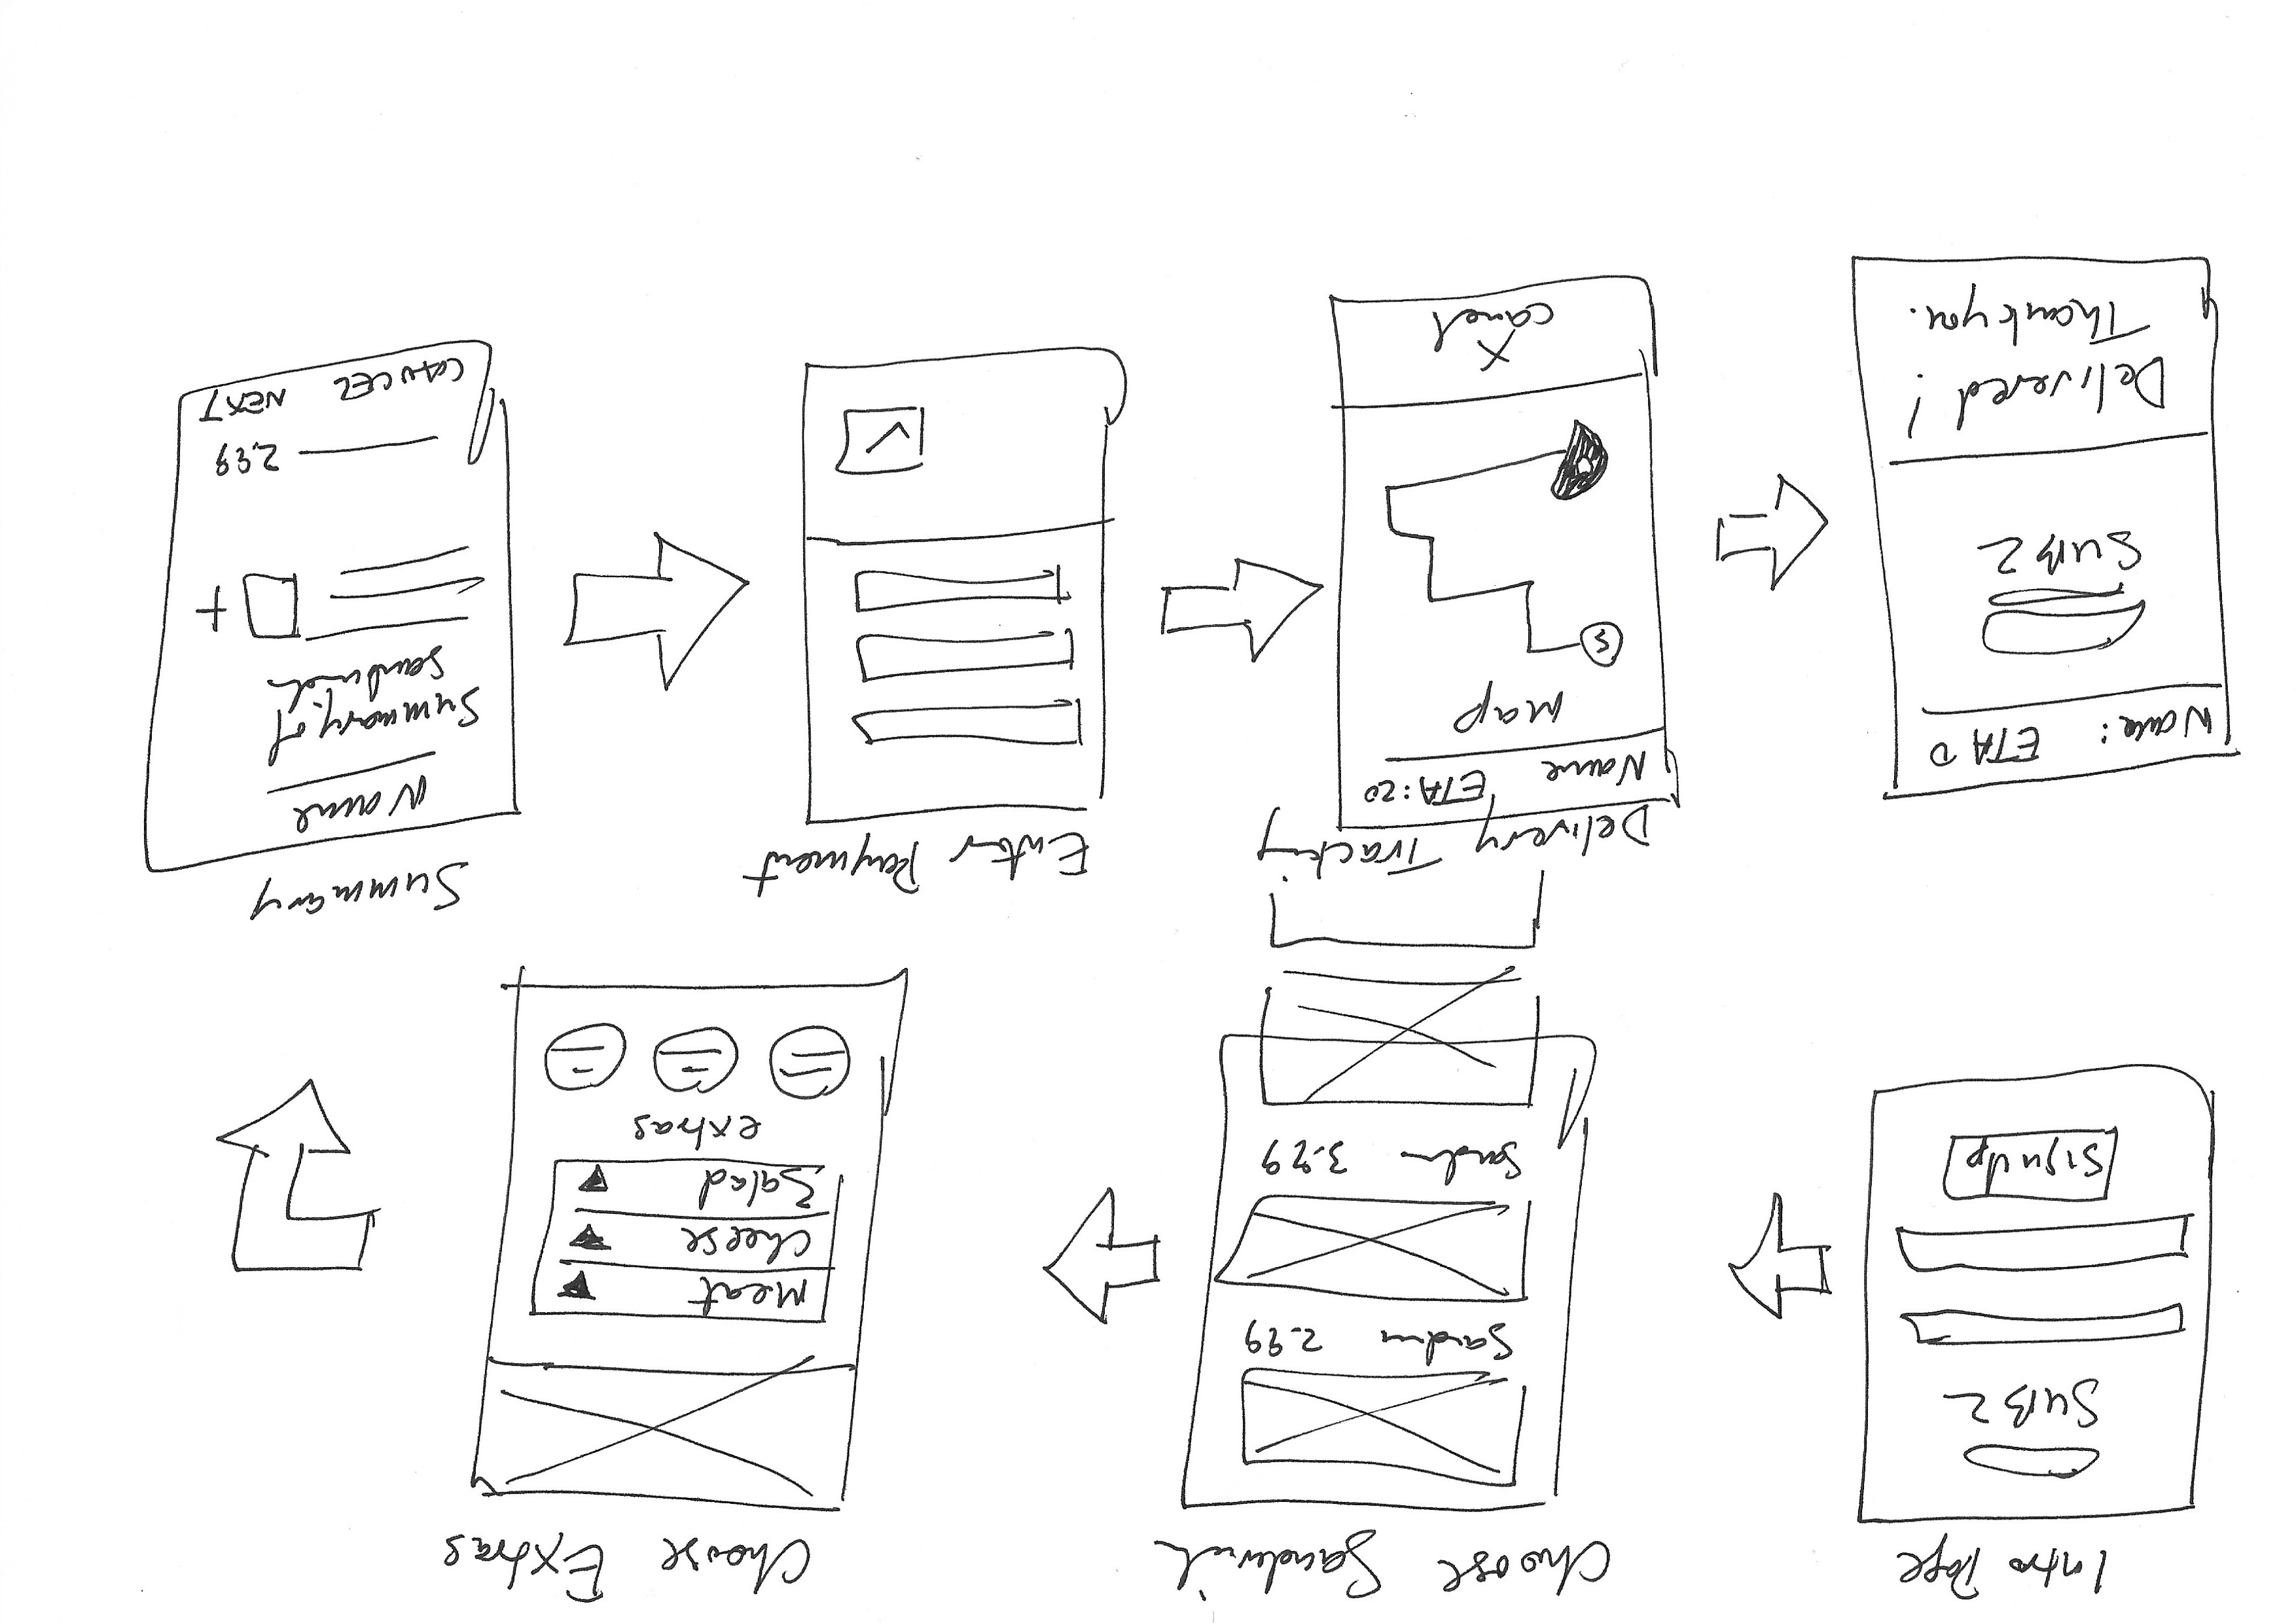 Intro Page
SUB2
Sign Up
Choose Sandwich
2.99
3.99
Choose Extras
Meat
Cheese
Salad
extras
Summary
Name
Summary of
sandwich
2.99
CANCEL NEXT
Enter Payment
Delivery Tracking
Name ETA:20
Map
S
X
cancel
Name: ETA 0
SUB2
Delivered!
Thank you.